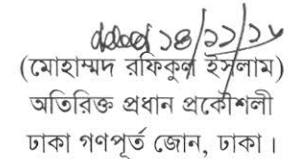 ১৪/১১/১৮
(মোহাম্মদ রফিকুল ইসলাম)
অতিরিক্ত প্রধান প্রকৌশলী
ঢাকা গণপূর্ত জোন, ঢাকা।